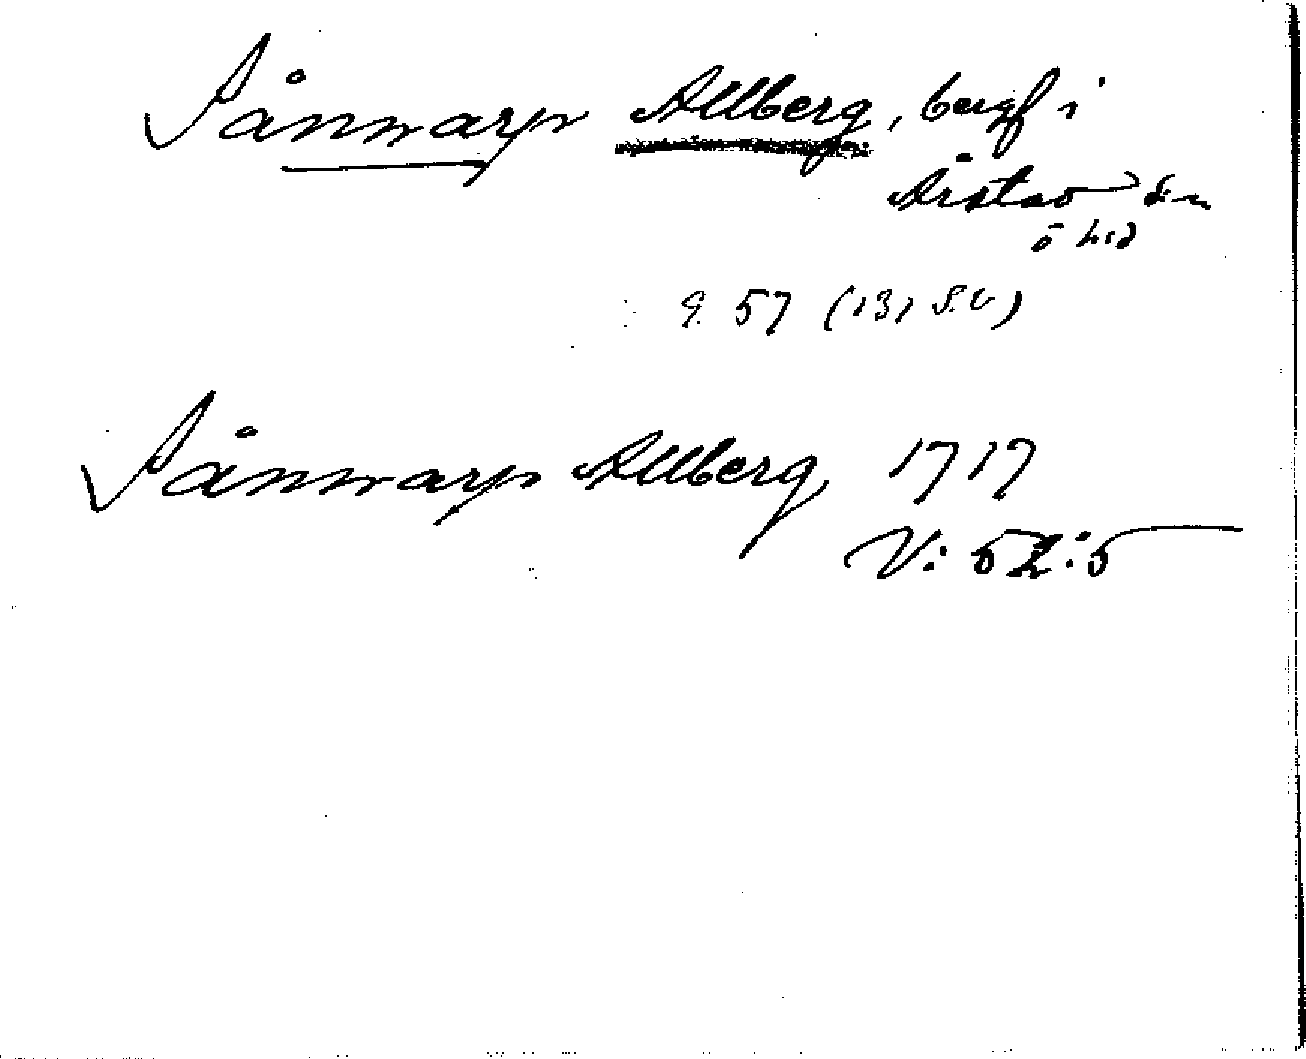 Sånnarp Allberg, bergf i
Årstad sn
ö hd
9. 57 (131 S.V)
Sånnarp Allberg, 1717
V: 52:5